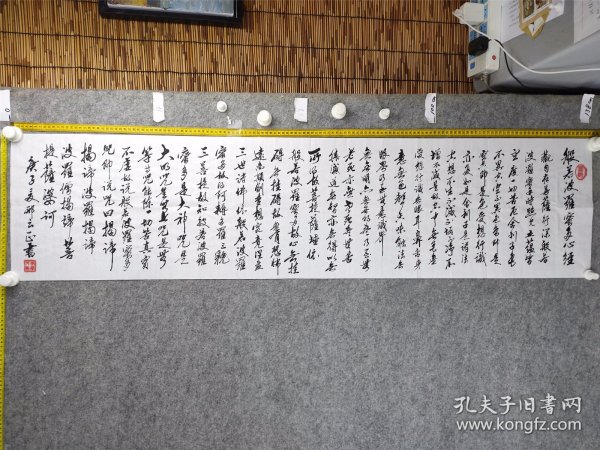 般若波羅蜜多心經
觀自在菩薩行深般若
波羅蜜多時照見五蘊皆
空度一切苦厄舍利子色
不異空空不異色色即是
空空即是色受想行識
亦復如是舍利子是諸法
空相不生不滅不垢不淨不
增不減是故空中無色無受
想行識無眼耳鼻舌身
意無色聲香味觸法無
眼界乃至無意識界
無無明亦無無明盡乃至無
老死亦無老死盡無苦集
滅道無智亦無得以無
所得故菩提薩埵依
般若波羅蜜多故心無挂
礙無挂礙故無有恐怖
遠離顛倒夢想究竟涅盤
三世諸佛依般若波羅
蜜多故得阿耨多羅三藐
三菩提故知般若波羅
蜜多是大神咒是
大明咒是無上咒是無
等等咒能除一切苦真實
不虛故說般若波羅蜜多
咒即說咒曰揭諦
揭諦波羅揭諦
波羅僧揭諦 菩
提薩婆訶
庚子夏邢云正書
孔夫子旧书网
www.kongfz.com